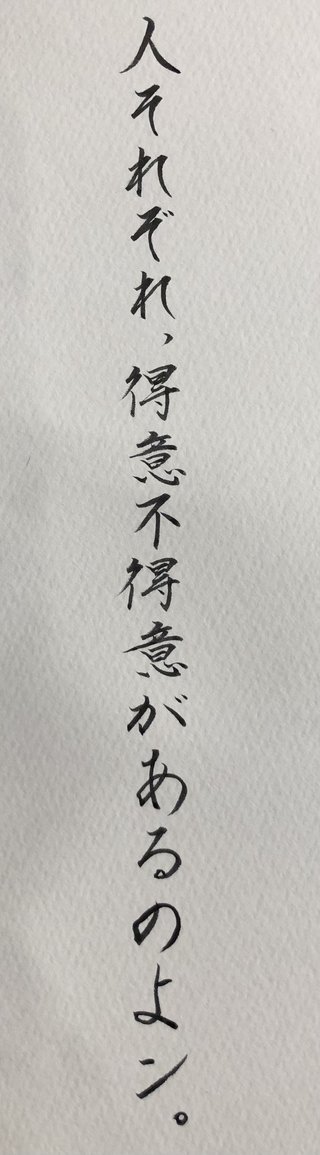 人それぞれ、得意不得意があるのよン。